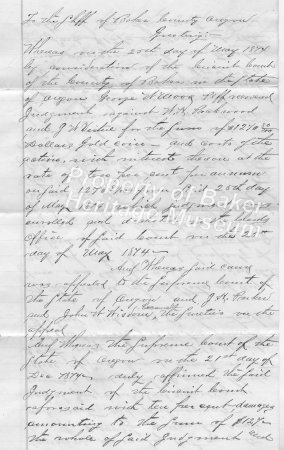 To the Sheriff of Baker County Oregon
Greeting:-
Whereas on the 20th day of May 1874
by consideration of the Circuit Court
of the County of Baker in the State
of Oregon George Wood Plff recovered
Judgment against W. H. Packwood
and J. W. for the sum of $1270
Dollars Gold coin and costs of the
action, with interest thereon at the
rate of ten per cent per annum
on said 1270 from said 20th day
of May which judgment was
enrolled and in the clerks
office of said Court on the
day of May 1874-
And Whereas said cause
was appealed to the Supreme Court of
the State of Oregon and J. H.
and John W Wisdom the Sureties on the
appeal
And Whereas the Supreme Court of the
State of Oregon on the 21st day of
Dec 1874 duly affirmed the said
Judgment of the Circuit Court
aforesaid with ten per cent damages
amounting to the sum of $127
the whole of said Judgment and
Property of Baker
Heritage Museum